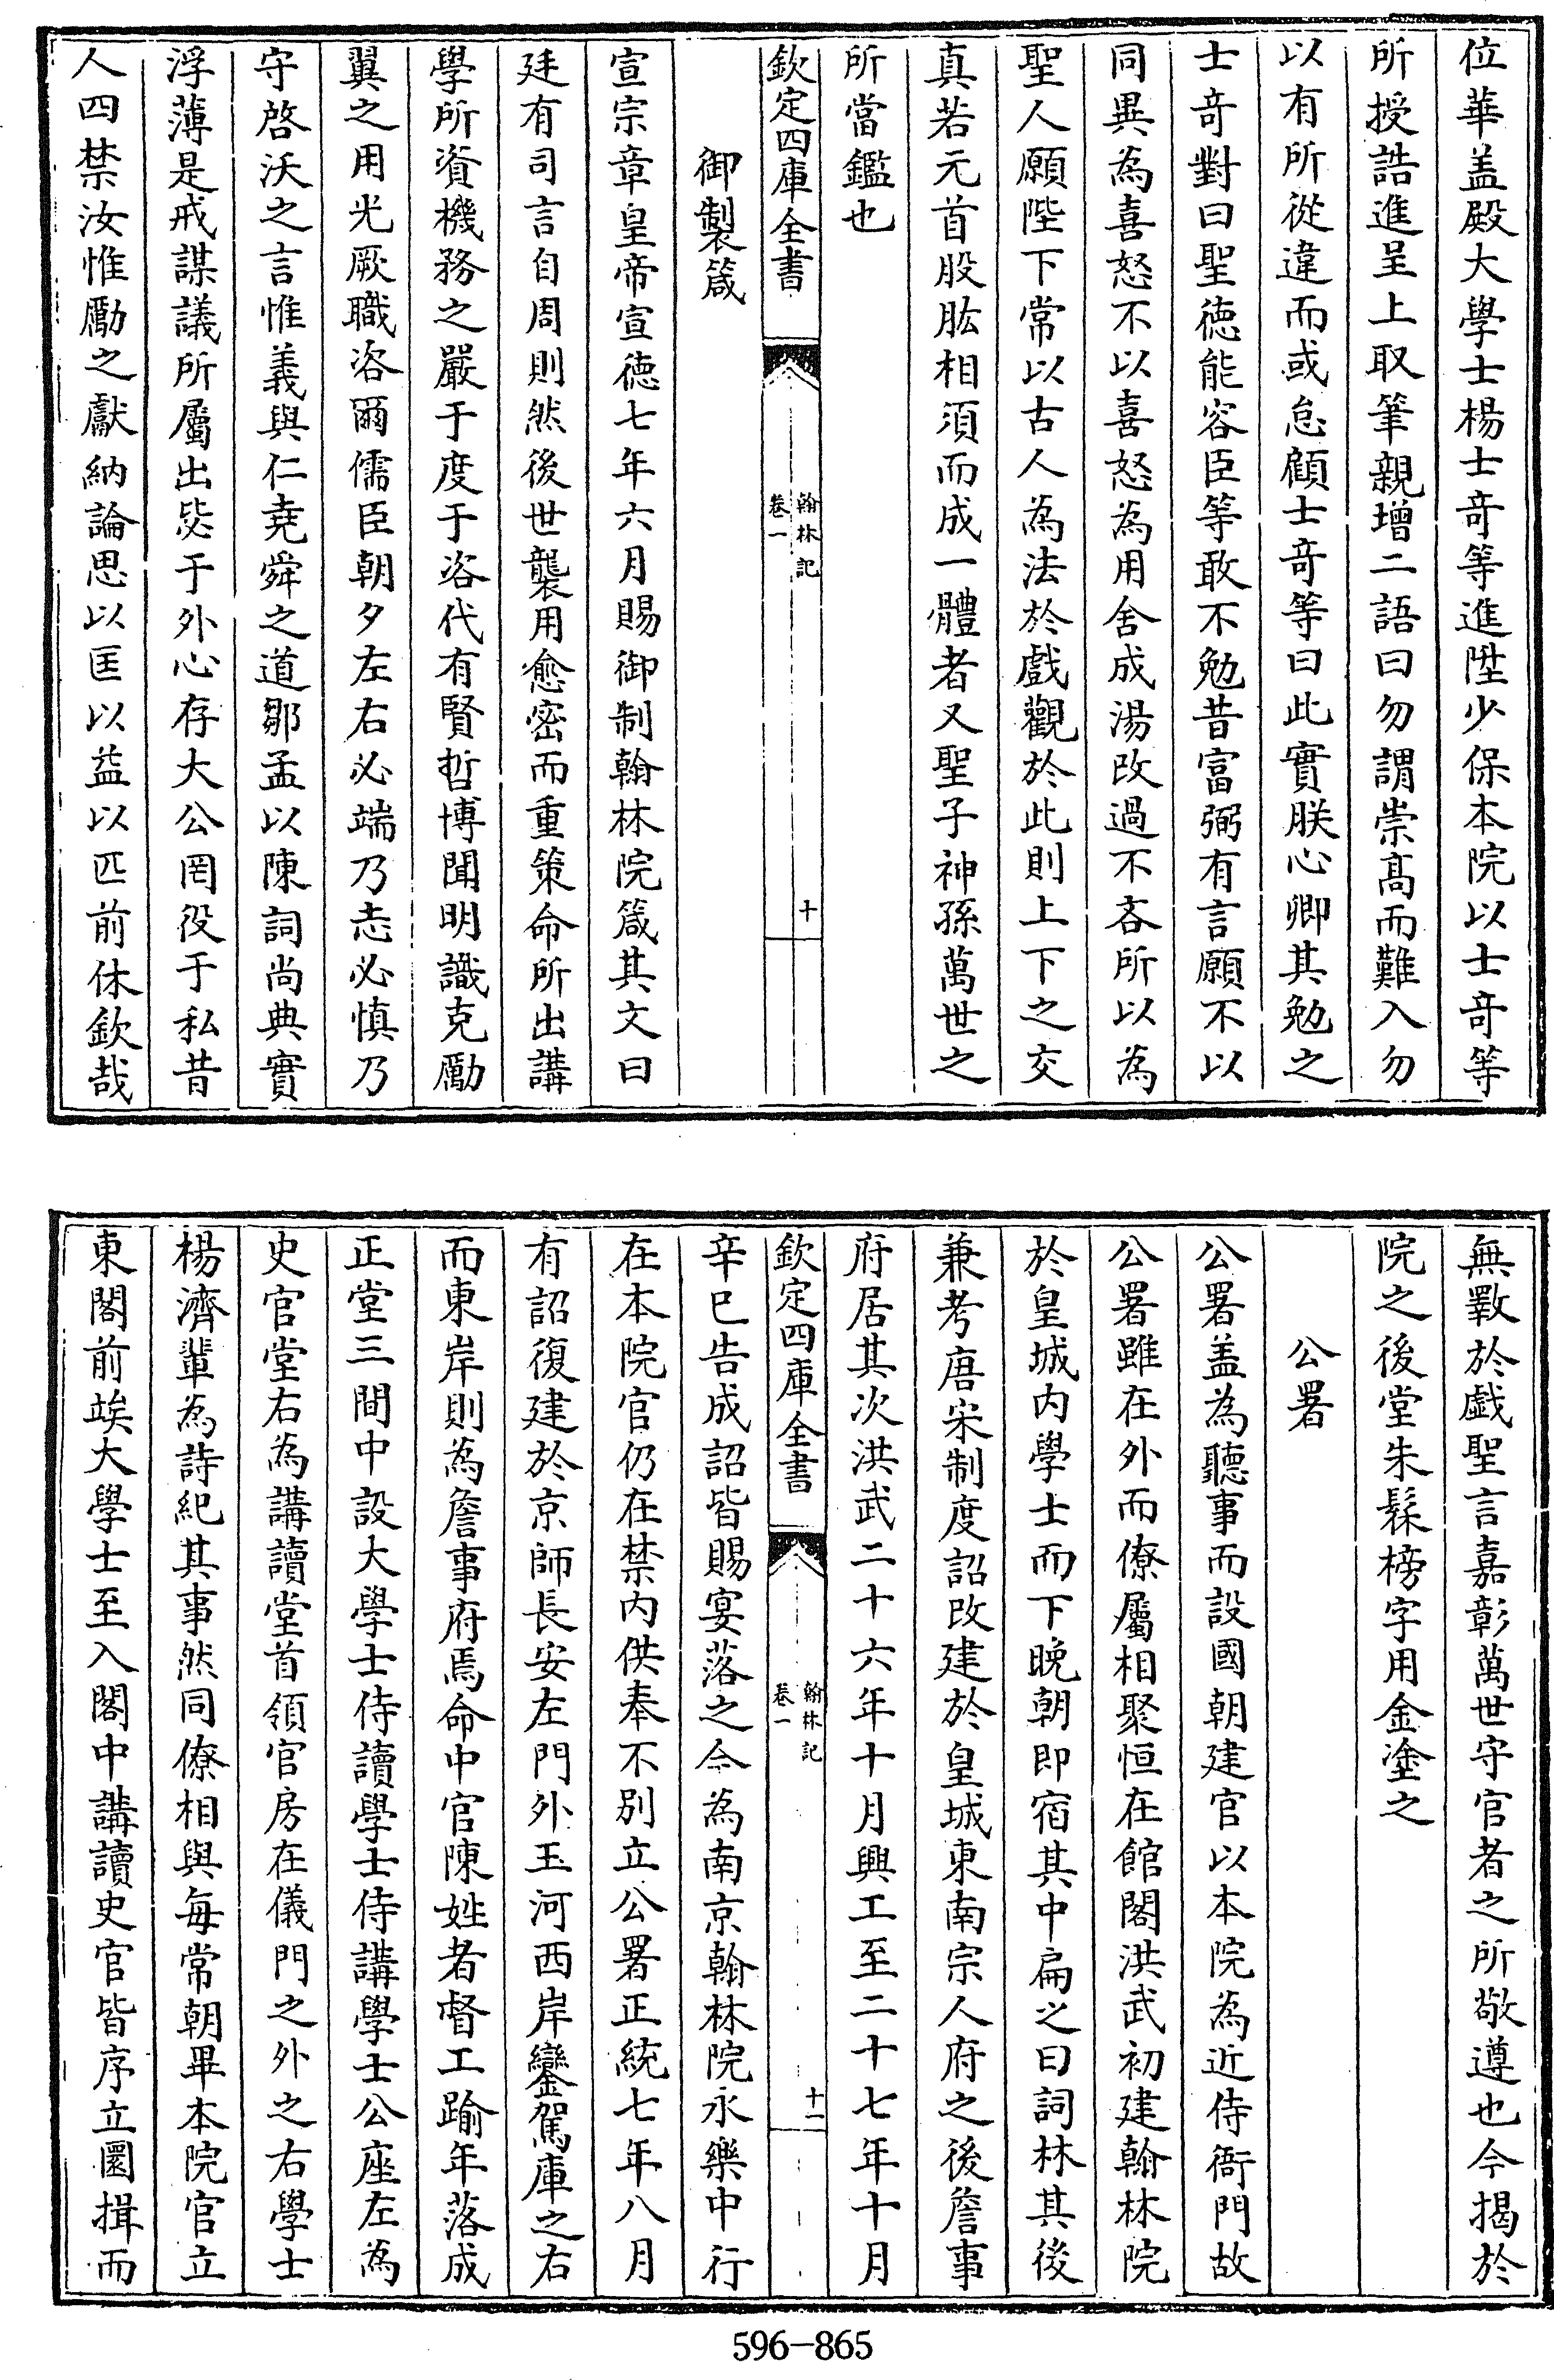 位華盖殿大學士楊士竒等進陞少保本院以士竒等
所授誥進呈上取筆親增二語曰勿謂崇髙而難入勿
以有所從違而或怠顧士竒等曰此實朕心卿其勉之
士竒對曰聖徳能容臣等敢不勉昔富弼有言願不以
同異為喜怒不以喜怒為用舍成湯改過不吝所以為
聖人願陛下常以古人為法於戲觀於此則上下之交
真若元首股肱相須而成一體者又聖子神孫萬世之
所當鑑也
欽定四庫全書
翰林記
卷一
十
御製箴
宣宗章皇帝宣徳七年六月賜御制翰林院箴其文曰
廷有司言自周則然後世襲用愈密而重策命所出講
學所資機務之嚴于度于洛代有賢哲博聞明識克勵
翼之用光厥職咨爾儒臣朝夕左右必端乃志必慎乃
守啓沃之言惟義與仁堯舜之道鄒孟以陳詞尚典實
浮薄是戒謀議所屬出毖于外心存大公罔役于私昔
人四禁汝惟勵之獻納論思以匡以益以匹前休欽哉
無斁於戯聖言嘉彰萬世守官者之所敬遵也今揭於
院之後堂朱髹榜字用金塗之
公署
公署盖為聽事而設國朝建官以本院為近侍衙門故
公署雖在外而僚屬相聚恒在館閣洪武初建翰林院
於皇城内學士而下晩朝即宿其中扁之曰詞林其後
兼考唐宋制度詔改建於皇城東南宗人府之後詹事
府居其次洪武二十六年十月興工至二十七年十月
欽定四庫全書
翰林記
卷一
十一
辛巳告成詔皆賜宴落之今為南京翰林院永樂中行
在本院官仍在禁内供奉不别立公署正統七年八月
有詔復建於京師長安左門外玉河西岸鑾駕庫之右
而東岸則為詹事府焉命中官陳姓者督工踰年落成
正堂三間中設大學士侍讀學士侍講學士公座左為
史官堂右為講讀堂首領官房在儀門之外之右學士
楊濟輩為詩紀其事然同僚相與每常朝畢本院官立
東閣前竢大學士至入閣中講讀史官皆序立圜揖而
596-865